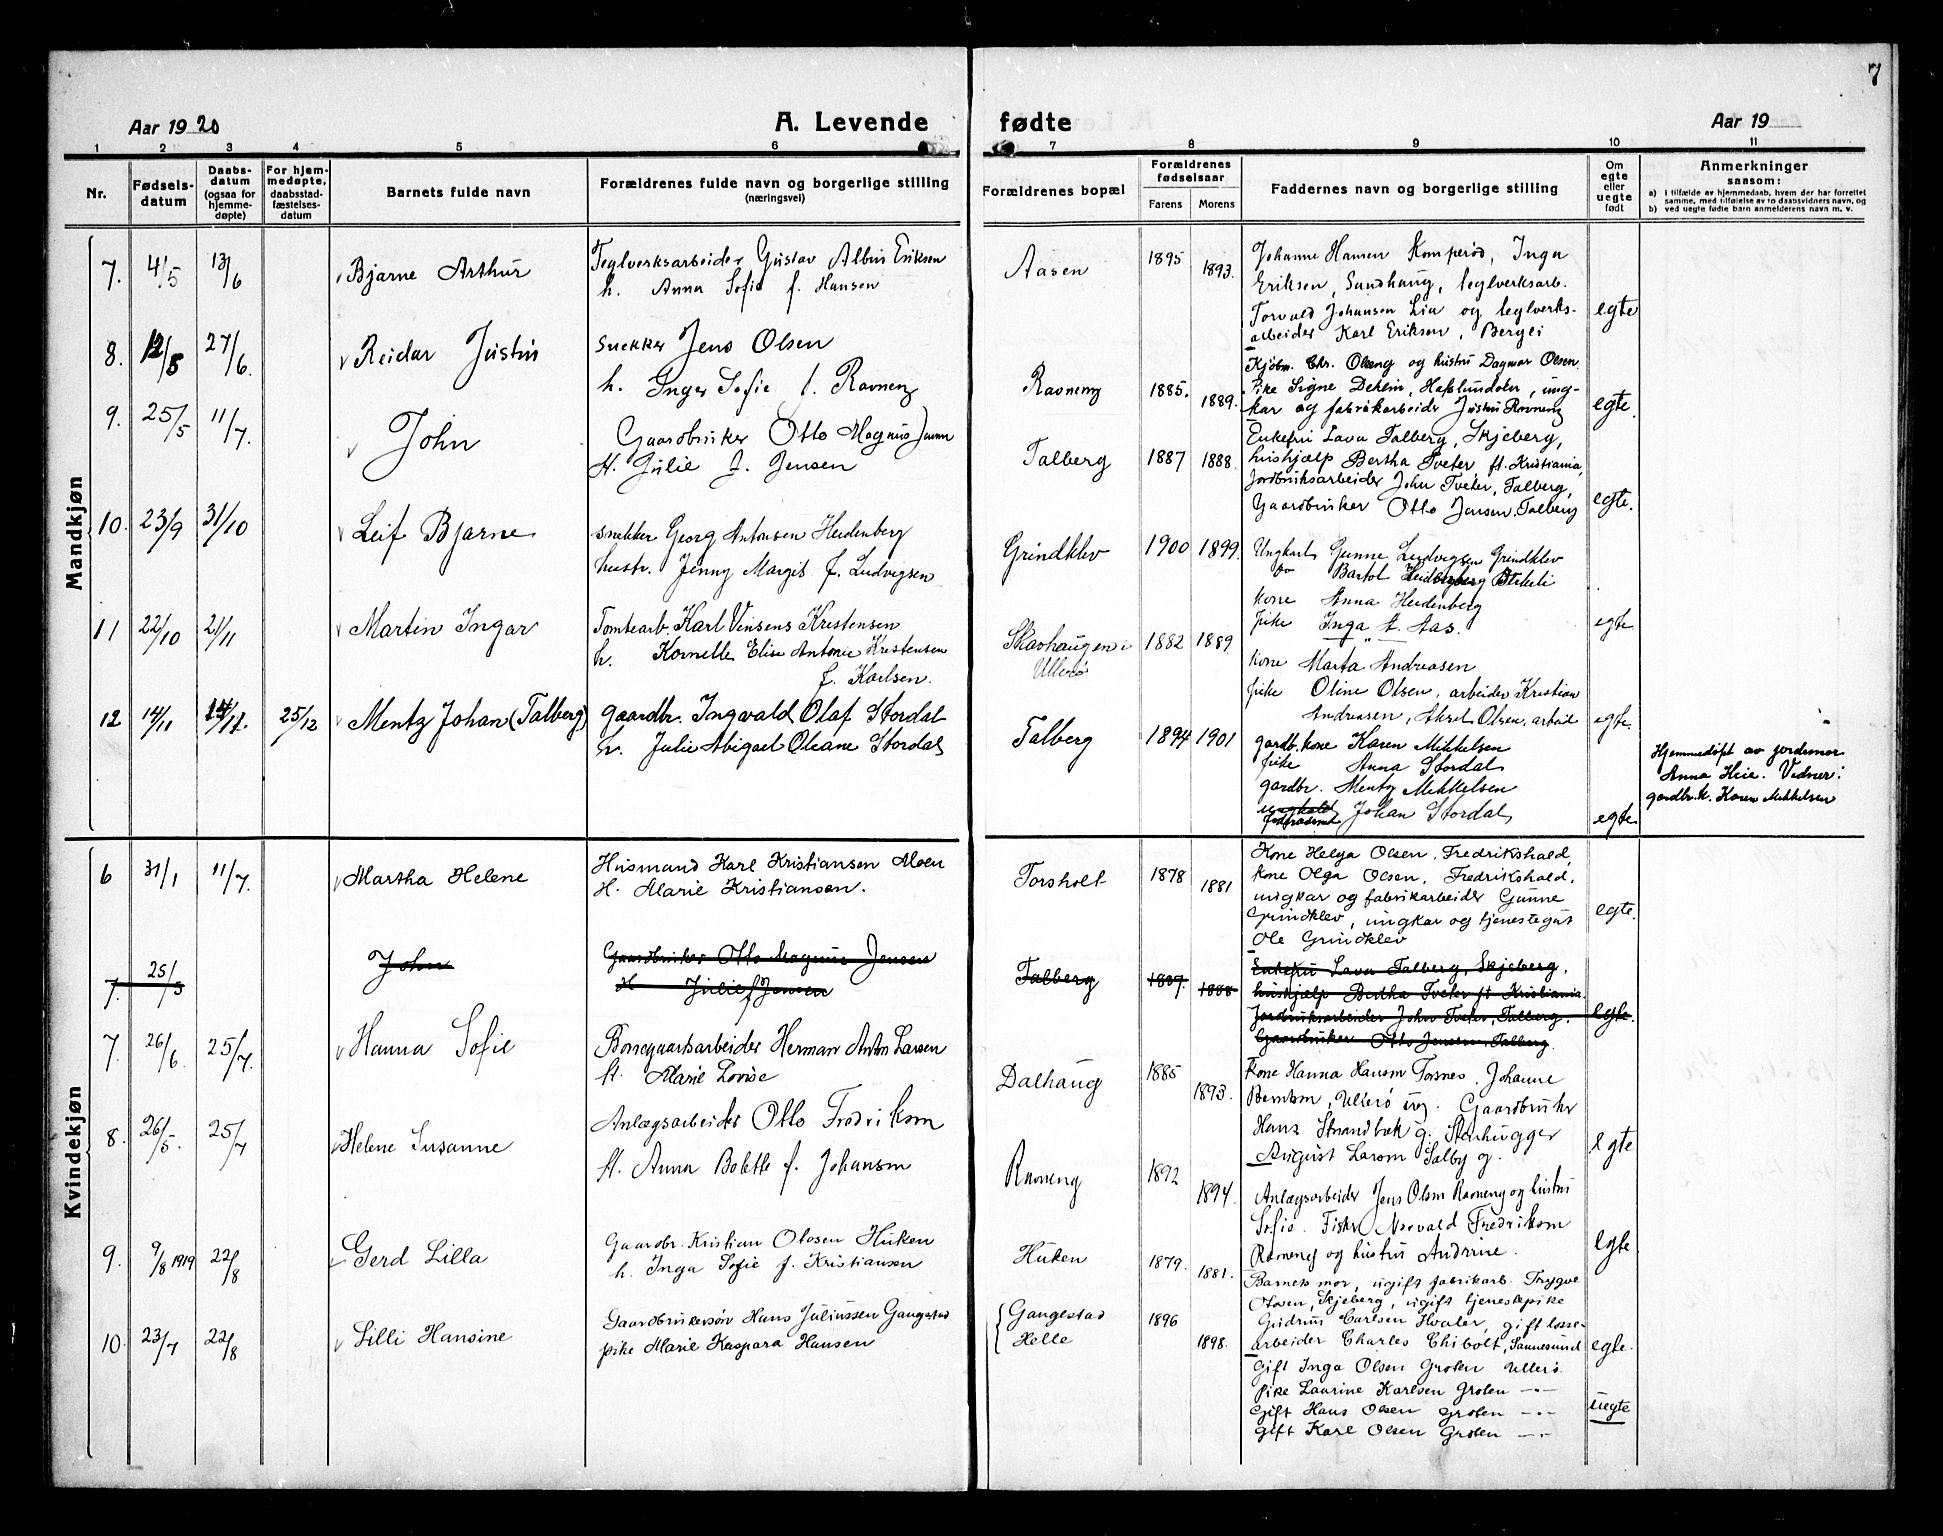 7
Aar 1920
A. Levende fødte
Aar 19
1 2 3 4 5 6 7 8 9 10 11
Nr.
Fødsels-
datum
Daabs-
datum
(ogsaa for
hjemme-
døpte)
For hjem-
medøpte,
daabsstad-
fæstelses-
datum
Barnets fulde navn
Forældrenes fulde navn og borgerlige stilling
(næringsvei)
Forældrenes bopæl
Forældrenes
fødselsaar
Farens Morens
Faddernes navn og borgerlige stilling
Om
egte
eller
uegte
født
Anmerkninger
saasom:
a) i tilfælde av hjemmedaab, hvem der har forrettet
samme, med tilføielse av to daabsvidners navn, og
b) ved uegte fødte barn anmelderens navn m. v.
Mandkjøn
7. 4/5 13/6 Bjarne Arthur
Teglverksarbeider Gustav Albin Eriksen
h. Anna Sofie f. Hansen
Aasen 1895 1893.
Johanne Hansen Komperød, Inga
Eriksen, Sandhaug, teglverksarb.
Torvald Johansen Lia og teglverks-
arbeider Karl Eriksen, Berglï
egte
8. 12/5 27/6. Reidar Justin
Snekker Jens Olsen
h. Inger Sofie f. Ravneng
Ravneng 1885. 1889.
Kjøbm. Chr. Olseng og hustru Dagmar Olsen
Pike Signe Dehlin, Hafslundsten, ung-
kar og fabrikarbeider Justin Ravneng
egte.
9. 25/5 11/7. John
Gaardbruker Otto Magnus Jensen
H. Julie f. Jensen
Talberg 1887 1888.
Enkefru Lava Talberg, Skjeberg,
hushjælp Bertha Tveter, ft. Kristiania,
Jordbruksarbeider John Tveter, Talberg,
Gaardbruker Otto Jensen, Talberg
egte.
10. 23/9 31/10 Leif Bjarne
snekker Georg Antonsen Heidenberg
hustr. Jenny Margit f. Ludvigsen
Grindklev 1900 1899.
Ungkarl Gunne Ludvigsen Grindklev
do Bartol Heidenberg
kone Anna Heidenberg
pike Inga A. Aas.
egte
11 22/10 21/11 Martin Ingar
Tomtearb. Karl Vinsens Kristensen
h. Kornelle Elise Antonie Kristensen
f. Karlsen.
Skavhaugen i
Ullerø
1882 1889
kone Marta Andreasen
pike Oline Olsen, arbeider Kristian
Andreasen, Aksel Olsen, arbeid
egte.
12 14/11 14/12. 25/12 Mentz Johan (Talberg)
gaardbr. Ingvald Olaf Stordal
h. Julie Abigael Oleane Stordal
Talberg 1894 1901
gardb. kone Karen Mikkelsen
pike Anna Stordal
gardbr. Mentz Mikkelsen
Johan Stordal
egte
Hjemmedøpt av jordmor
Anna Heie. Vidner:
gardbr.k. Karen Mikkelsen
Kvindekjøn
6 31/1 11/7. Martha Helene
Husmand Karl Kristiansen Moen
H. Marie Kristiansen.
Torsholt 1878 1881
Kone Helga Olsen, Fredrikshald,
kone Olga Olsen, Fredrikshald,
ungkar og fabrikarbeider Gunne
Grindklev, ungkar og tjenestegut
Ole Grindklev
egte.
7. 25/5 John
Gaardbruker Otto Magnus Jensen
H Julie f Jensen
Talberg 1887. 1888
Enkefru Lava Talberg, Skjeberg,
hushjælp Bertha Tveter ft Kristiania
Jordbruksarbeider John Tveter, Talberg,
Gaardbruker Otto Jensen, Talberg
egte.
7. 26/6 25/7. Hanna Sofie
Bonegaardsarbeider Herman Anton Larsen
H. Marie Lovise
Dalhaug 1885 1893.
Kone Hanna Hansen Torsnes, Johanne
Berntsen, Ullerø og. Gaardbruker
Hans Strandbæk g. Stenhugger
August Larsen Salby g.
egte
8. 26/5. 25/7 Helene Susanne
Anlægsarbeider Otto Fredriksen
H. Anna Bolette f. Johansen
Ravneng 1892 1894.
Anlægsarbeider Jens Olsen Ravneng og hustru
Sofie. Fisker Norvald Fredriksen
Ravneng og hustru Andrine.
egte
9. 9/8 1919 22/8 Gerd Lilla
Gaardbr. Kristian Olosen Huken
h. Inga Sofie f. Kristiansen
Huken 1879. 1881.
Barnets mor, ugift fabrikarb. Trygve
Olosen, Skjeberg, ugift tjenestepike
Gudrun Carlsen Hvaler, gift losse-
arbeider Charles Chibolt, Sannesund
egte.
10. 23/7 22/8 Lilli Hansine
Gaardbrukersøn Hans Juliussen Gangestad
pike Marie Kaspara Hansen
Gangestad
Helle
1896 1898.
Gift Inga Olsen Groten Ullerø
Pike Laurine Karlsen Groten -"-
Gift Hans Olsen Groten -"-
Gift Karl Olsen Groten -"-
uegte